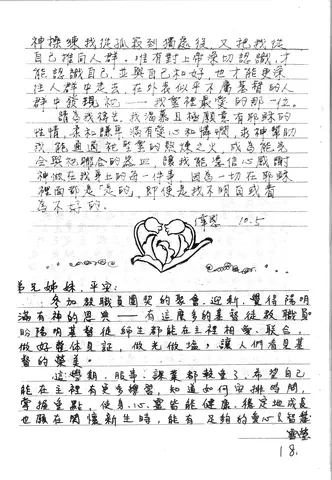 神操練我從孤寂到獨處後,又把我從
自己推向人群。唯有對上帝深切認識,才
能認識自己,並與自己和好,也才能更深
住人群中走去,在外表似乎不屬基督的人
群中發現祂——我靈裡最愛的那一位。
請為我禱告,我渴慕且極願意有耶穌的
性情,柔和謙卑滿有愛心和憐憫,求神幫助
我能通過祂聖靈的熬煉之火,成為能完
全與祂聯合的器皿,讓我能憑信心感謝
神做在我身上的每一件事,因為一切在耶穌
裡面都是「是」的,即使是我不明白或看
為不好的。
偉恩 10.5
弟兄姊妹,平安:
參加教職員團契的聚會、迎新,覺得陽明
滿有神的恩典——有這麼多的基督徒教職員
盼陽明基督徒師生都能在主裡相愛、聯合,
做好整体見証,做光做塩,讓人們看見基
督的榮美。
這學期,服事、課業都較重了,希望自己
能在主裡有更多操習,知道如何安排時間,
掌握重點,使身、心、靈皆能健康、穩定地成長
也願在關懷新生時,能有足夠的愛心&智慧
18.